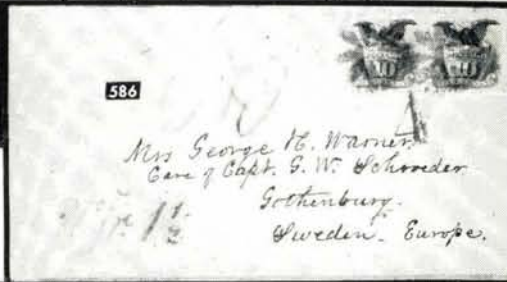 10 10
586
Mrs George H. Warner.
Care of Capt. G. W. Schroeder
Gothenburg.
Sweden. Europe.